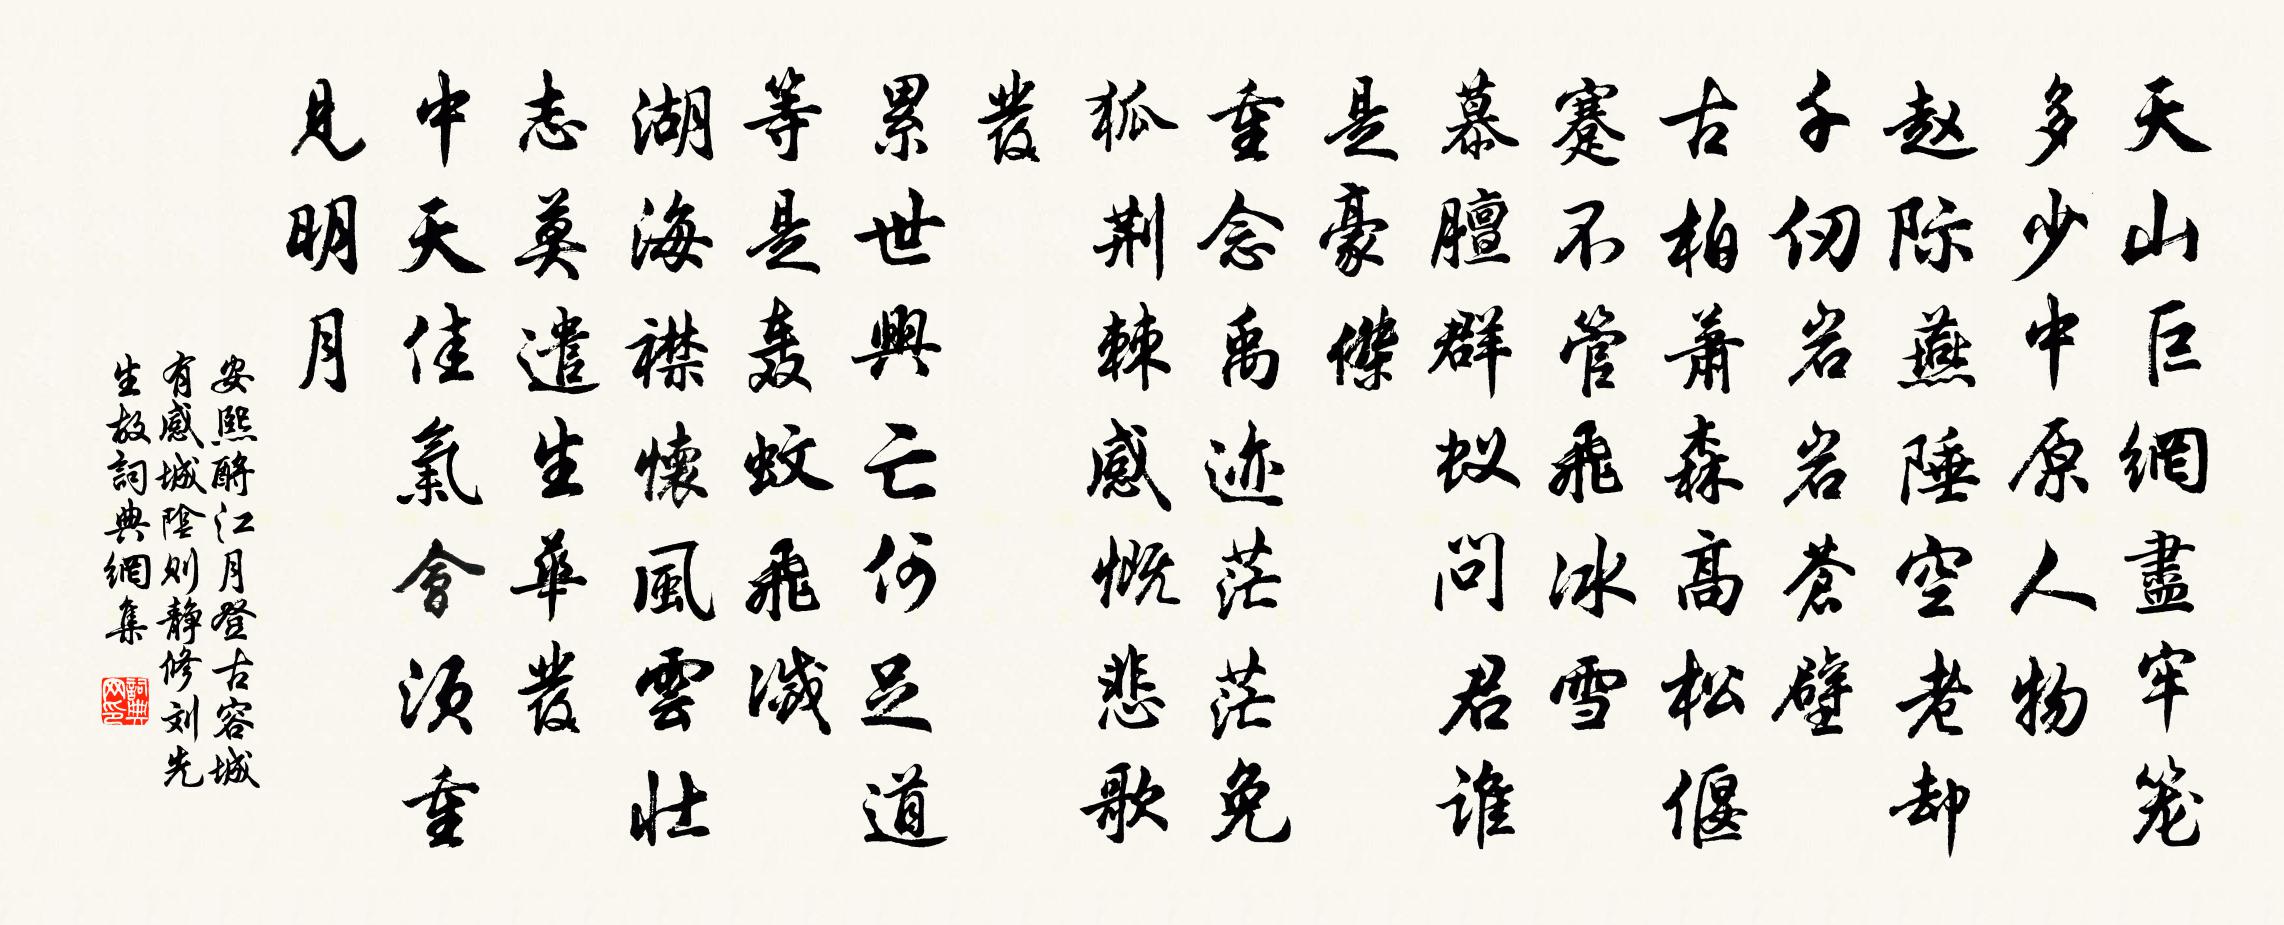 天山巨網盡牢笼
多少中原人物
赵际燕陲空老却
千仞岩岩苍壁
古柏萧森高松偃
蹇不管飛冰雪
慕膻群蚁问君谁
是豪傑
重念禹迹茫茫兔
狐荆棘感慨悲歌
發
累世興亡何足道
等是轰蚊飛滅
湖海襟懷風雲壮
志莫遣生華發
中天佳氣會须重
見明月
安熙酹江月登古容城
有感城陰则静修刘先
生故詞典網集
詞典网印